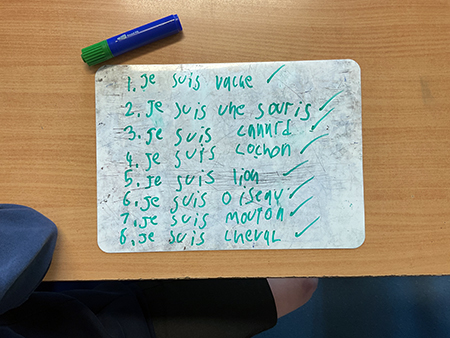 1. Je suis vache ✓
2. Je suis une souris ✓
3. Je suis canard ✓
4. Je suis cochon ✓
5. Je suis lion ✓
6. Je suis oiseau ✓
7. Je suis mouton ✓
8. Je suis cheval ✓